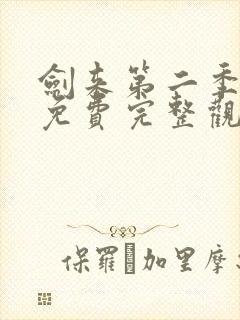 劍来第二季
免費完整觀
保羅·加里摩